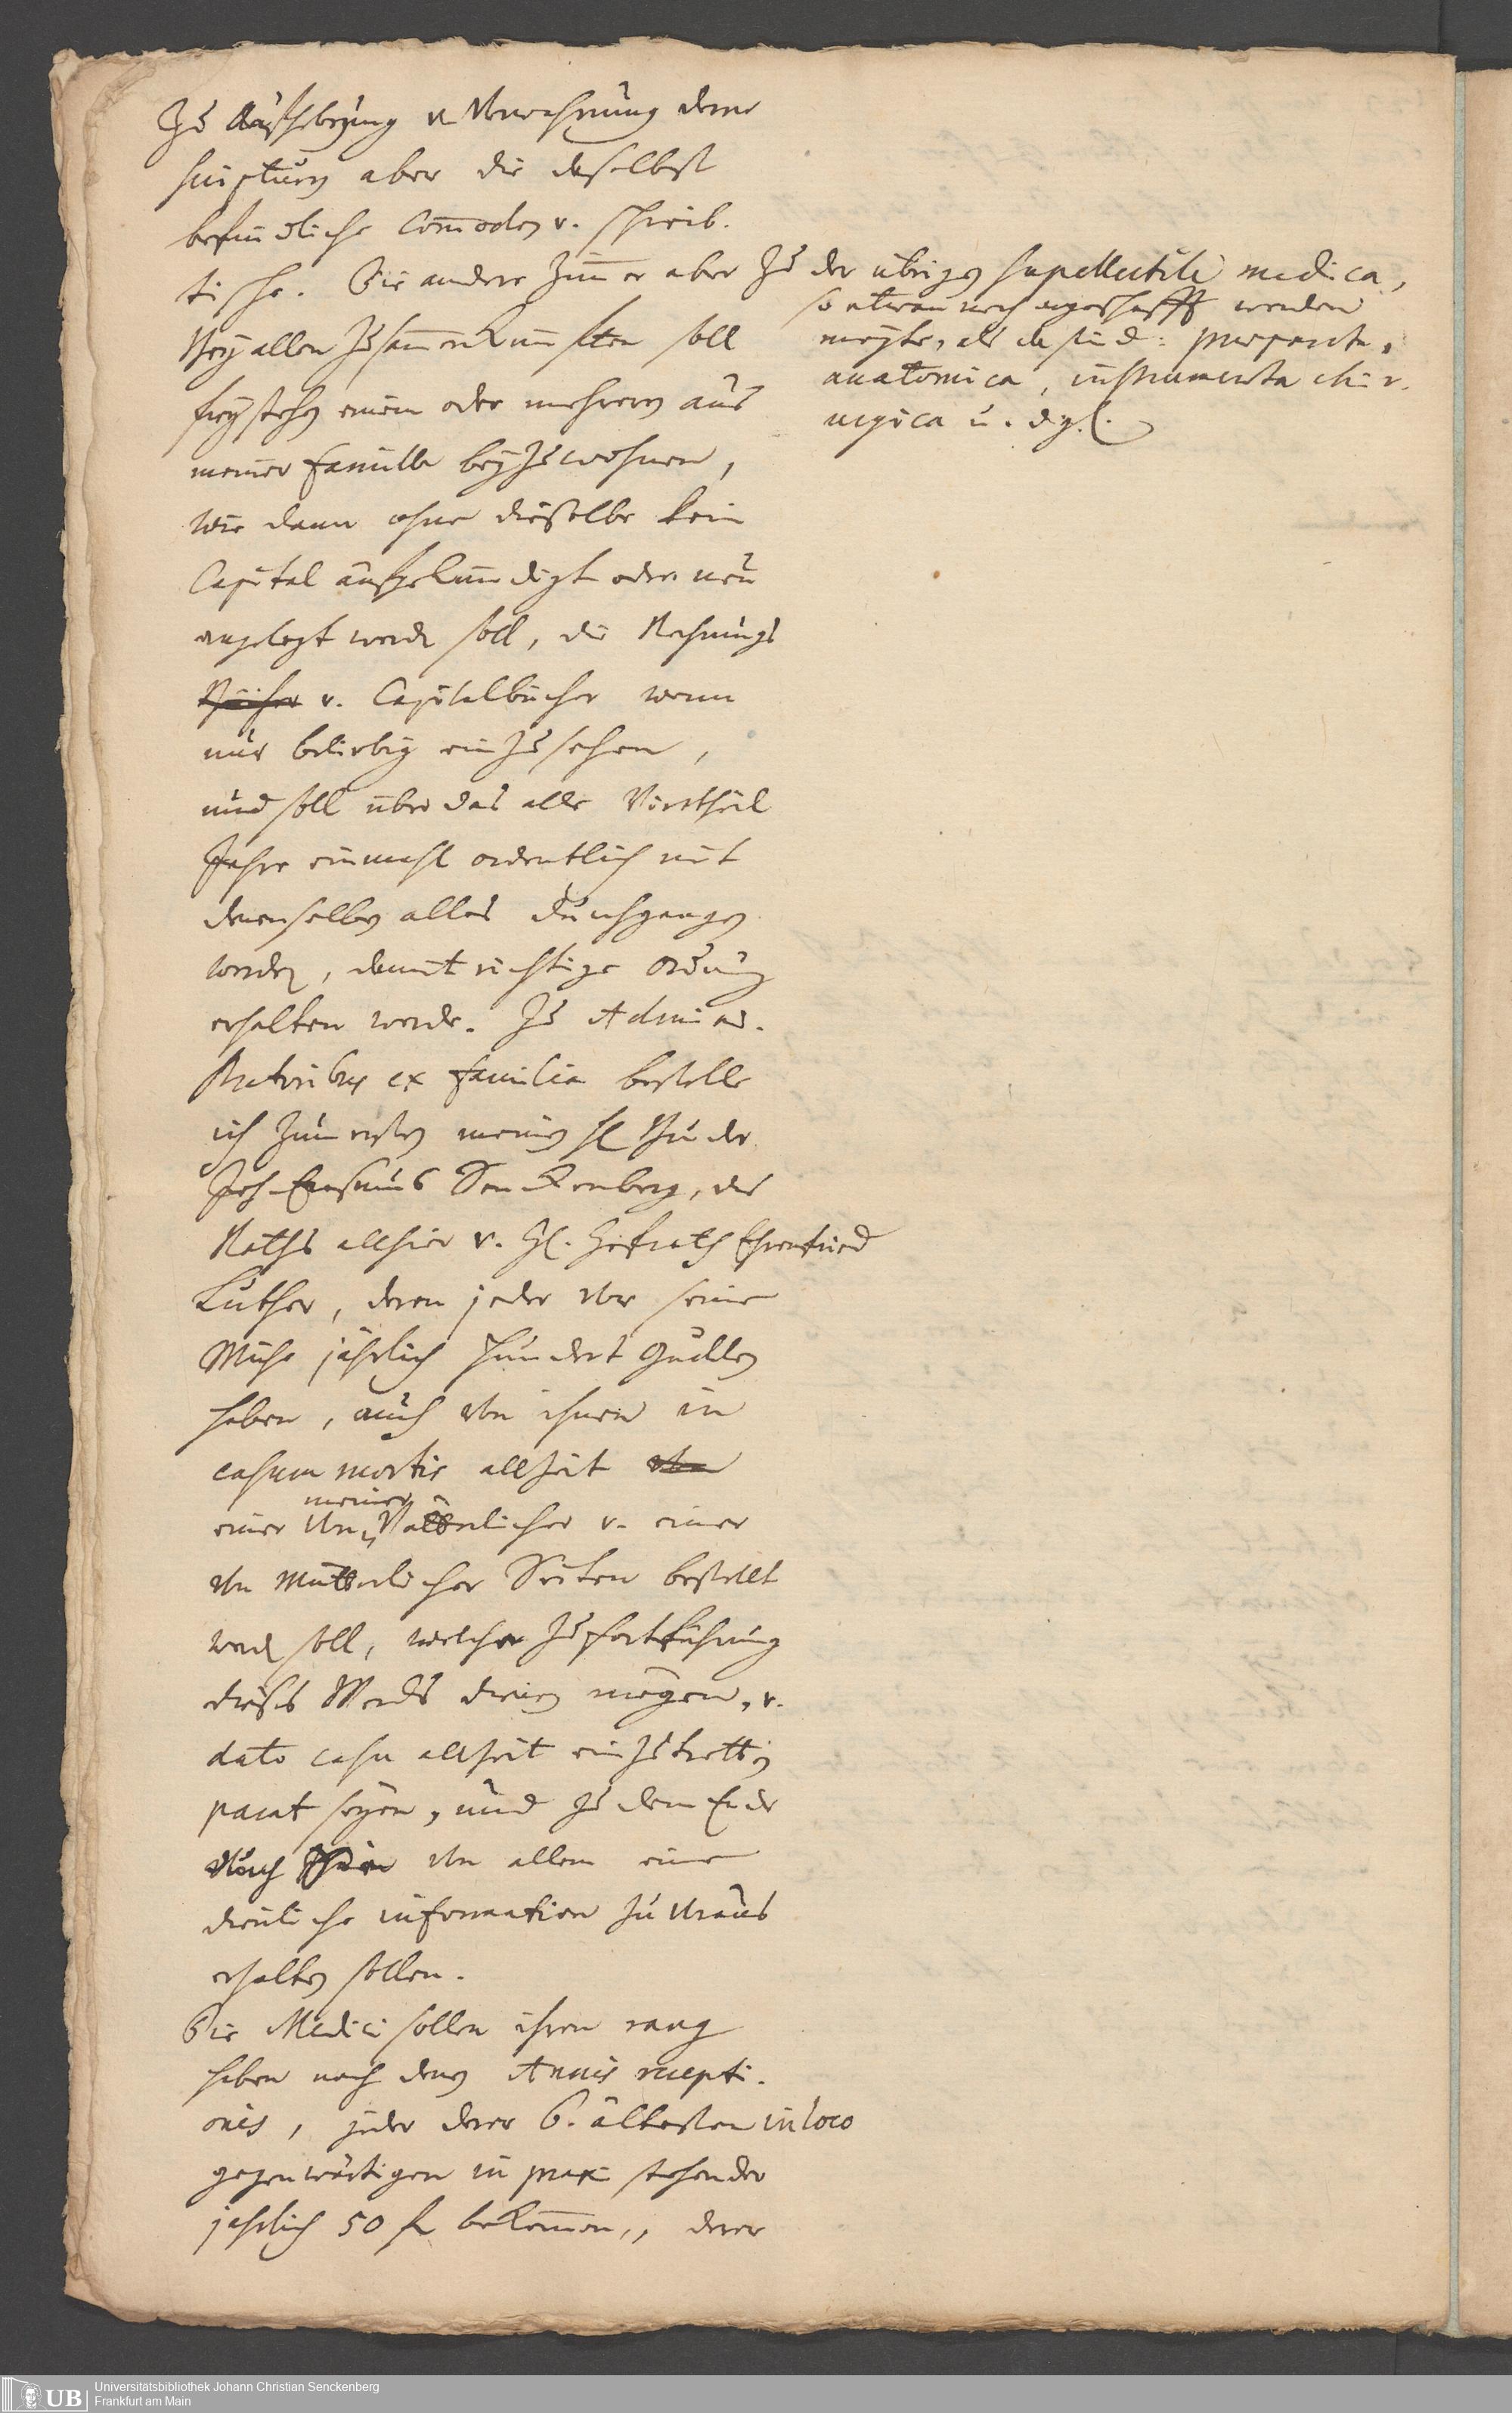 Zu Aufhebung u Verwahrung derer
scripturen aber die daselbst
befindliche Com̅oden v. schreib-
tische. Die andere Zim̅er aber Zu der übrigen supellectili medica,
so etwan noch angeschafft werden
mögte, als da sind: præparata
anatomica, instrumenta chir-
urgica u. dgl.
Bey allen Zusam̅enkunfften soll
frey stehen einem oder mehrern aus
meiner famille beyzuwohnen,
wie dann ohne dieselbe kein
Capital aufgekündigt oder neu
angelegt werden soll, die Rechnungs
Bücher v. Capitalbücher wenn
nur beliebig einzusehen,
und soll über das alle Viertheil
Jahre einmahl ordentlich mit
denenselben alles durchgangen
werden, damit richtige Ordnung
erhalten werde. Zu Adminis-
tratoribus ex familia bestelle
ich zum ersten meinen H. Bruder
Joh. Erasmus Senckenberg, des
Raths allhier v. H. Hofrath Ehrenfried
Luther, deren jeder vor seine
Mühe jährlich hundert Gulden
haben, auch von ihnen in
casum mortis allzeit von
einer von meiner Vätterlicher v. einer
von Mütterlicher Seiten bestellt
werden soll, welcher zu fortführung
dieses Wercks dienen mögen, v.
dato casu allzeit einzutretten
parat seyen, und zu dem Ende
von allem eine
dienliche information zu voraus
erhalten sollen.
Die Medici sollen ihren rang
haben nach denen Annis recepti-
onis, jeder derer 6. ältesten in loco
gegenwärtigen in praxi stehender
jährlich 50 fl bekom̅en, derer
Universitätsbibliothek Johann Christian Senckenberg
Frankfurt am Main
UB